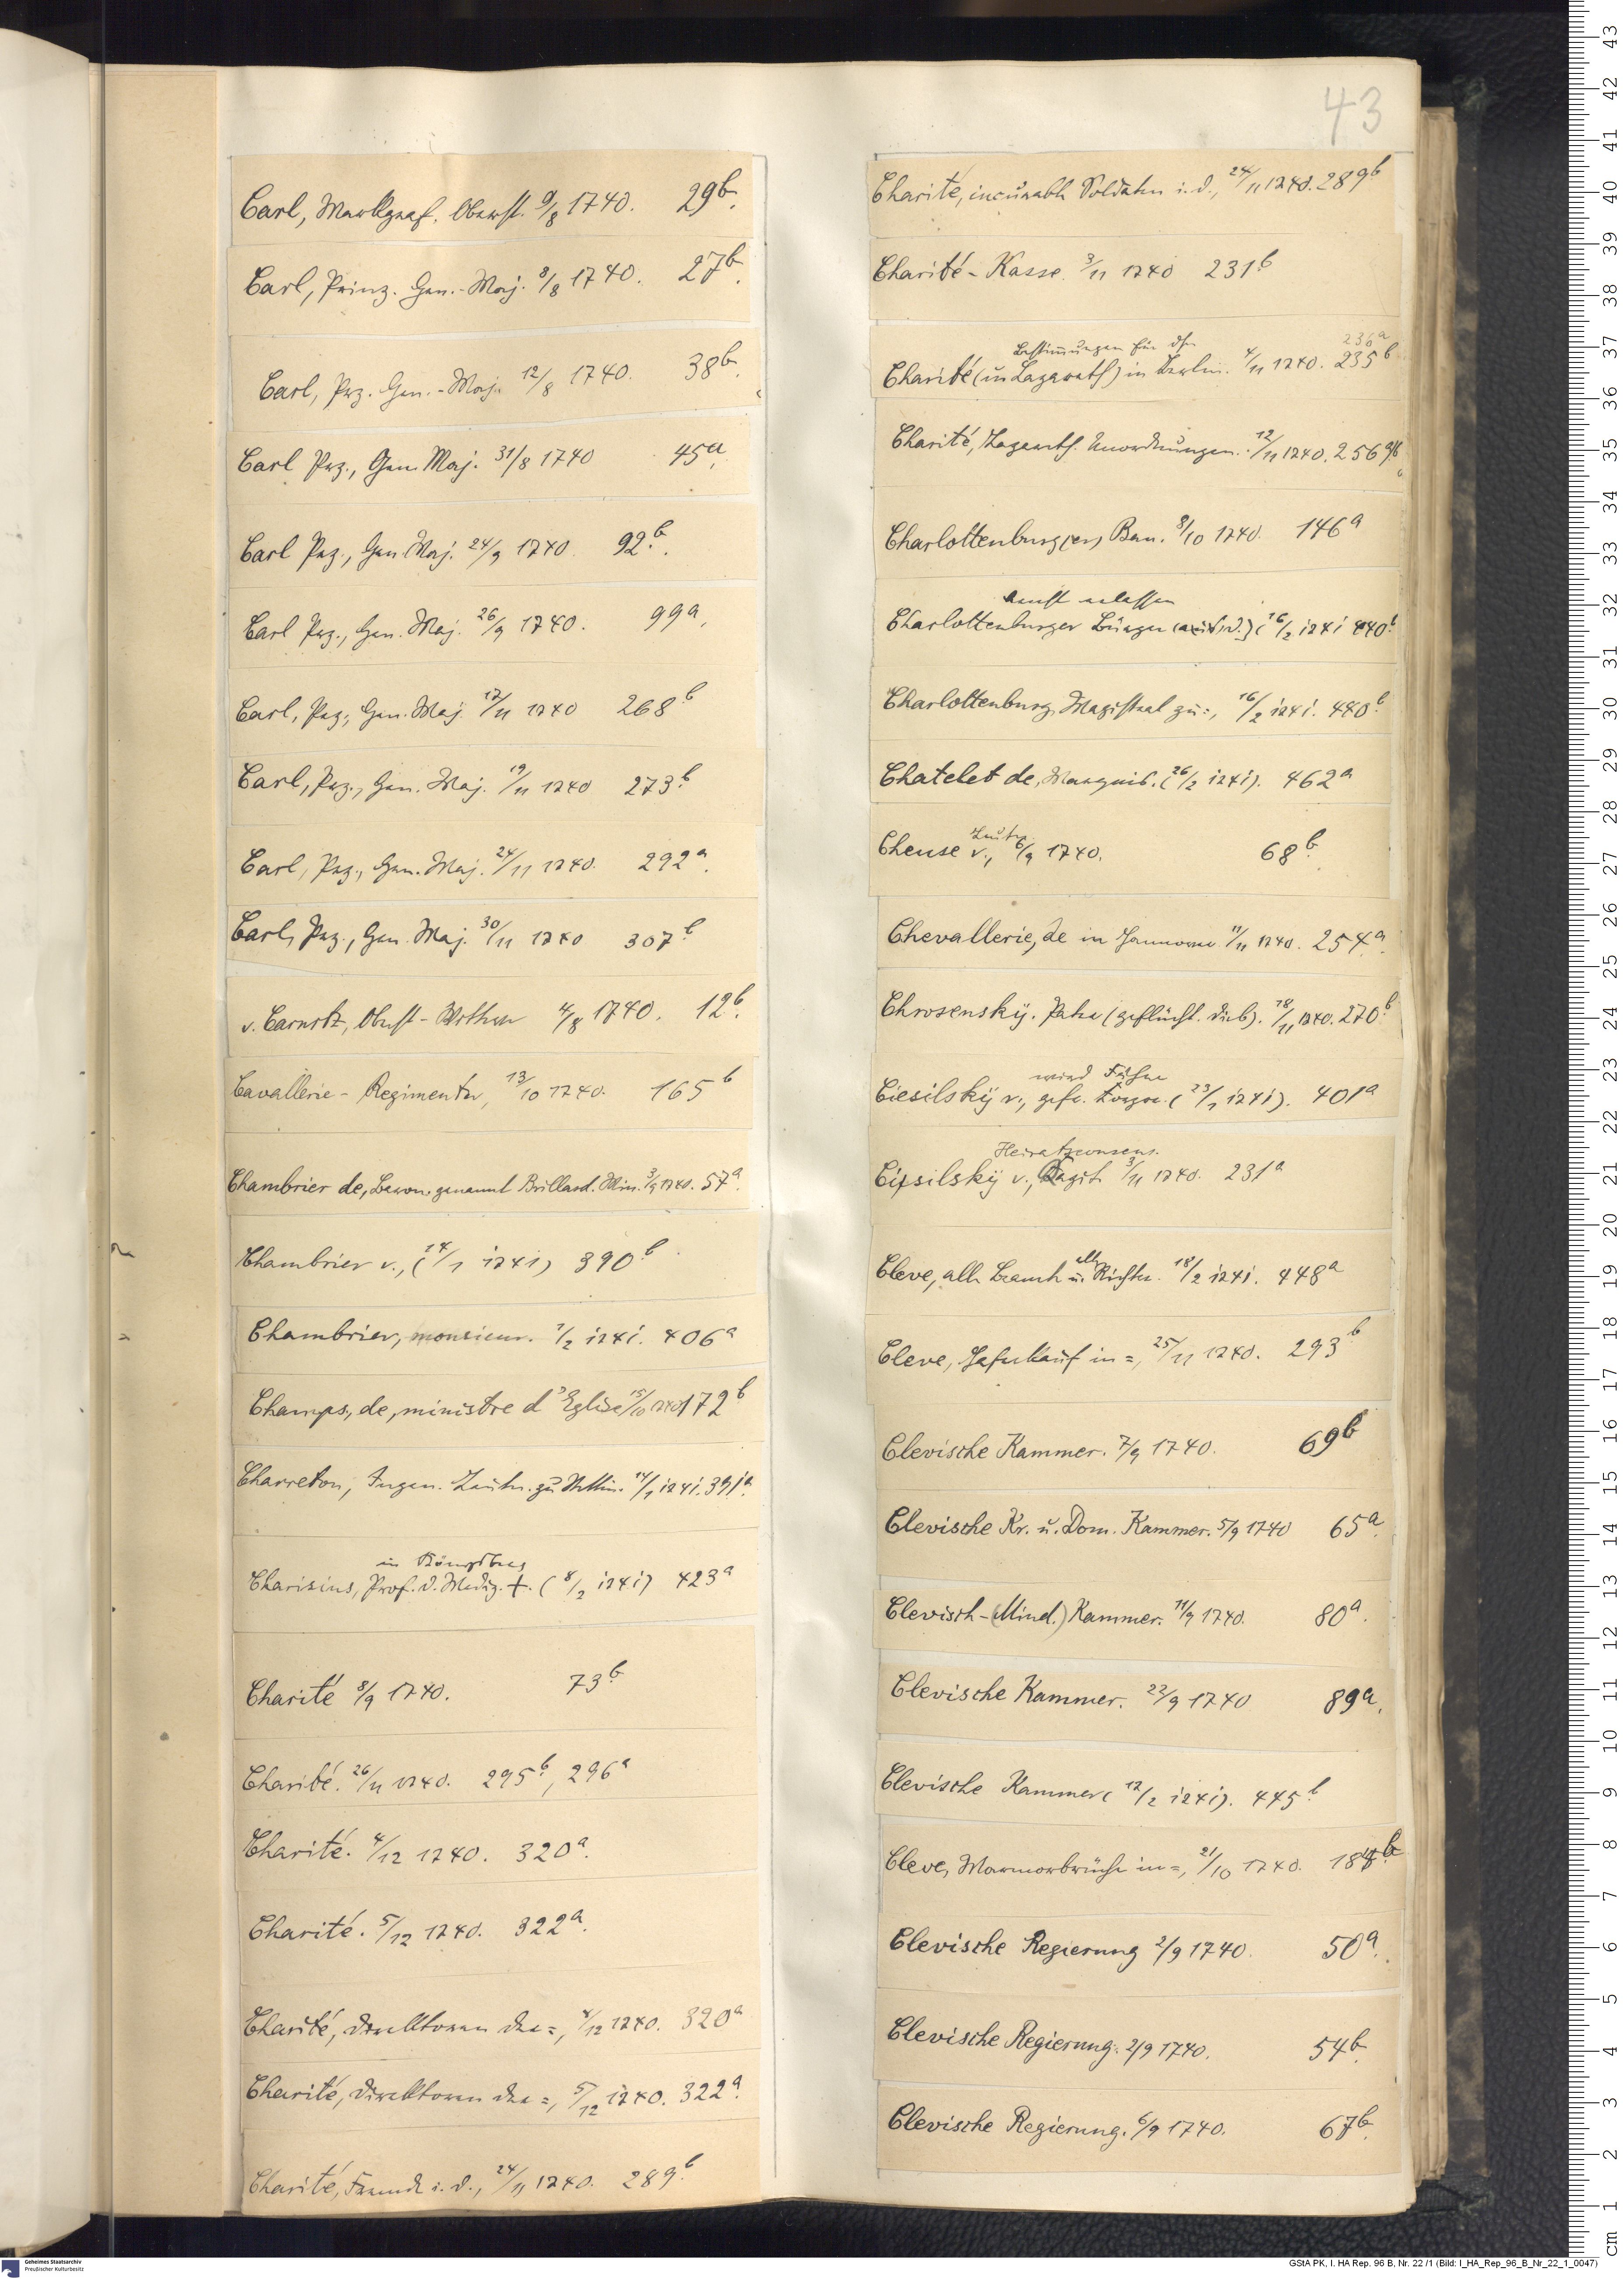 43
Carl, Markgraf. Oberst. 9/8 1740. 29b.
Carl, Prinz. Gen.-Maj. 8/8 1740. 27b.
Carl, Prz. Gen.-Maj. 12/8 1740. 38b.
Carl Prz., Gen. Maj. 31/8 1740 45a.
Carl Prz., Gen. Maj. 24/9 1740. 92b.
Carl Prz., Gen. Maj. 26/9 1740. 99a.
Carl, Prz., Gen. Maj. 17/11 1740 268b
Carl, Prz., Gen. Maj. 19/11 1740 273b.
Carl, Prz., Gen. Maj. 24/11 1740. 292a.
Carl, Prz., Gen. Maj. 30/11 1740 307b
v. Obrst- 4/8 1740. 12b.
Cavallerie-Regimenter, 13/10 1740. 165b
Chambrier de, Baron. genannt Brilland. Min. 3/9 1740. 57a.
Chambrier v., (14/1 1741) 390b
Chambrier, monsieur. 1/2 1741. 406a
Champs, de, ministre d'Eglise 15/10 1740 172b
Charreton, Ingen. Leutn. zu Stettin. 14/1 1741. 391a.
in Königsberg
Charisius, Prof. d. Mediz. +. (8/2 1741) 423a
Charité 8/9 1740. 73b
Charité. 26/11 1740. 295b, 296a
Charité. 4/12 1740. 320a.
Charité. 5/12 1740. 322a.
Charité, Direktoren der =, 4/12 1740. 320a
Charité, Direktoren der =, 5/12 1740. 322a.
Charité, Fremde i. d., 24/11 1740. 289b.
Charité, incurable Soldaten i. d., 24/11 1740. 289b
Charité-Kasse. 3/11 1740 231b
Bestimmungen für die 236a
Charité (u Lazareth) in Berlin. 4/11 1740. 235b
Charité, Lazareth. Anordnungen. 12/11 1740. 256a/b
Charlottenburg(er) Bau. 8/10 1740. 146a
Charlottenburger Bürger (16/2 1741 440b.
Charlottenburg, Magistrat zu =, 16/2 1741. 440b.
Chatelet de, Marquis. (26/2 1741). 462a
Leutn.
Cheuse v., 6/9 1740. 68b.
Chevallerie, de in Hannover. 11/11 1740. 254a.
Chrosensky. (geflücht. Dieb). 18/11 1740. 270b.
wird Fähnr.
Ciesilsky v., gefr. Korpor. (23/1 1741). 401a
Heiratsconsens.
Cipsilsky v., Capit. 3/11 1740. 231a
alle
Cleve, alle Beamte u. Richter. 18/2 1741. 448a
Cleve, Haferkauf in =, 25/11 1740. 293b
Clevische Kammer. 7/9 1740. 69b
Clevische Kr. u. Dom. Kammer. 5/9 1740 65a.
Clevisch-(Mind.) Kammer. 11/9 1740. 80a.
Clevische Kammer. 22/9 1740 89a.
Clevische Kammer (17/2 1741). 445b.
Cleve, Marmorbrüche in =, 21/10 1740. 184b
Clevische Regierung 2/9 1740. 50a.
Clevische Regierung. 2/9 1740. 54b.
Clevische Regierung. 6/9 1740. 67b.
Geheimes Staatsarchiv
Preußischer Kulturbesitz
GStA PK, I. HA Rep. 96 B, Nr. 22 /1 (Bild: I_HA_Rep_96_B_Nr_22_1_0047)